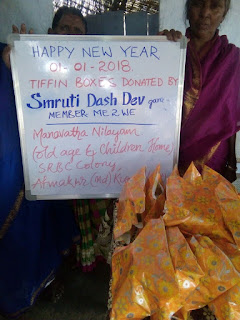 HAPPY NEW YEAR
01-01-2018.
TIFFIN BOXES DONATED BY
Smruti Dash Dev garu.
MEMBER ME 2 WE
Manavatha Nilayam
(old age & Children Home)
SRBC Colony,
Atmakur (md)